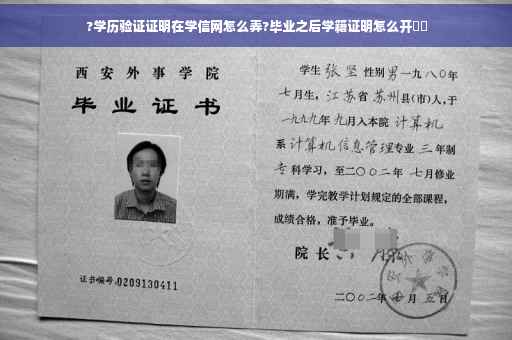 ?学历验证证明在学信网怎么弄?毕业之后学籍证明怎么开
西安外事学院
毕业证书
证书编号:0209130411
学生 张坚 性别 男 一九八〇年
七月生, 江苏省 苏州 县(市)人, 于
一九九九年 九月入本院 计算机
系 计算机信息管理 专业 三 年制
专 科学习, 至二〇〇二年 七月修业
期满, 学完教学计划规定的全部课程,
成绩合格, 准予毕业。
院长
二〇〇二年 七月 五日